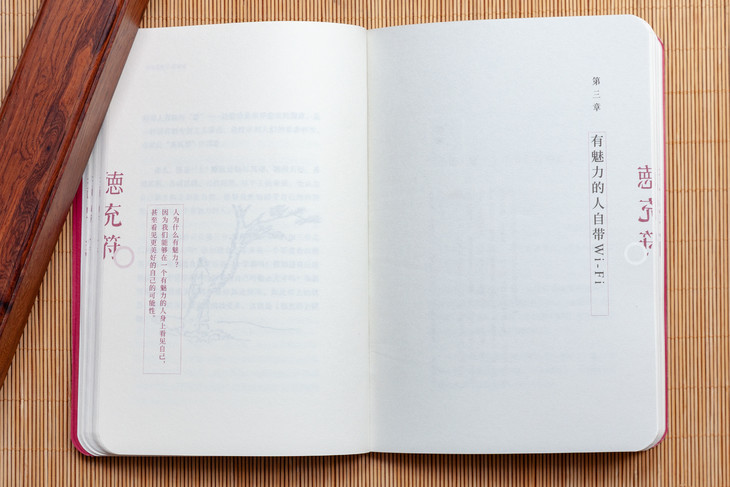 德充符
人为什么有魅力？
因为我们能够在一个有魅力的人身上看见自己，
甚至看见更美好的自己的可能性。
第三章
有魅力的人自带Wi-Fi
德充符